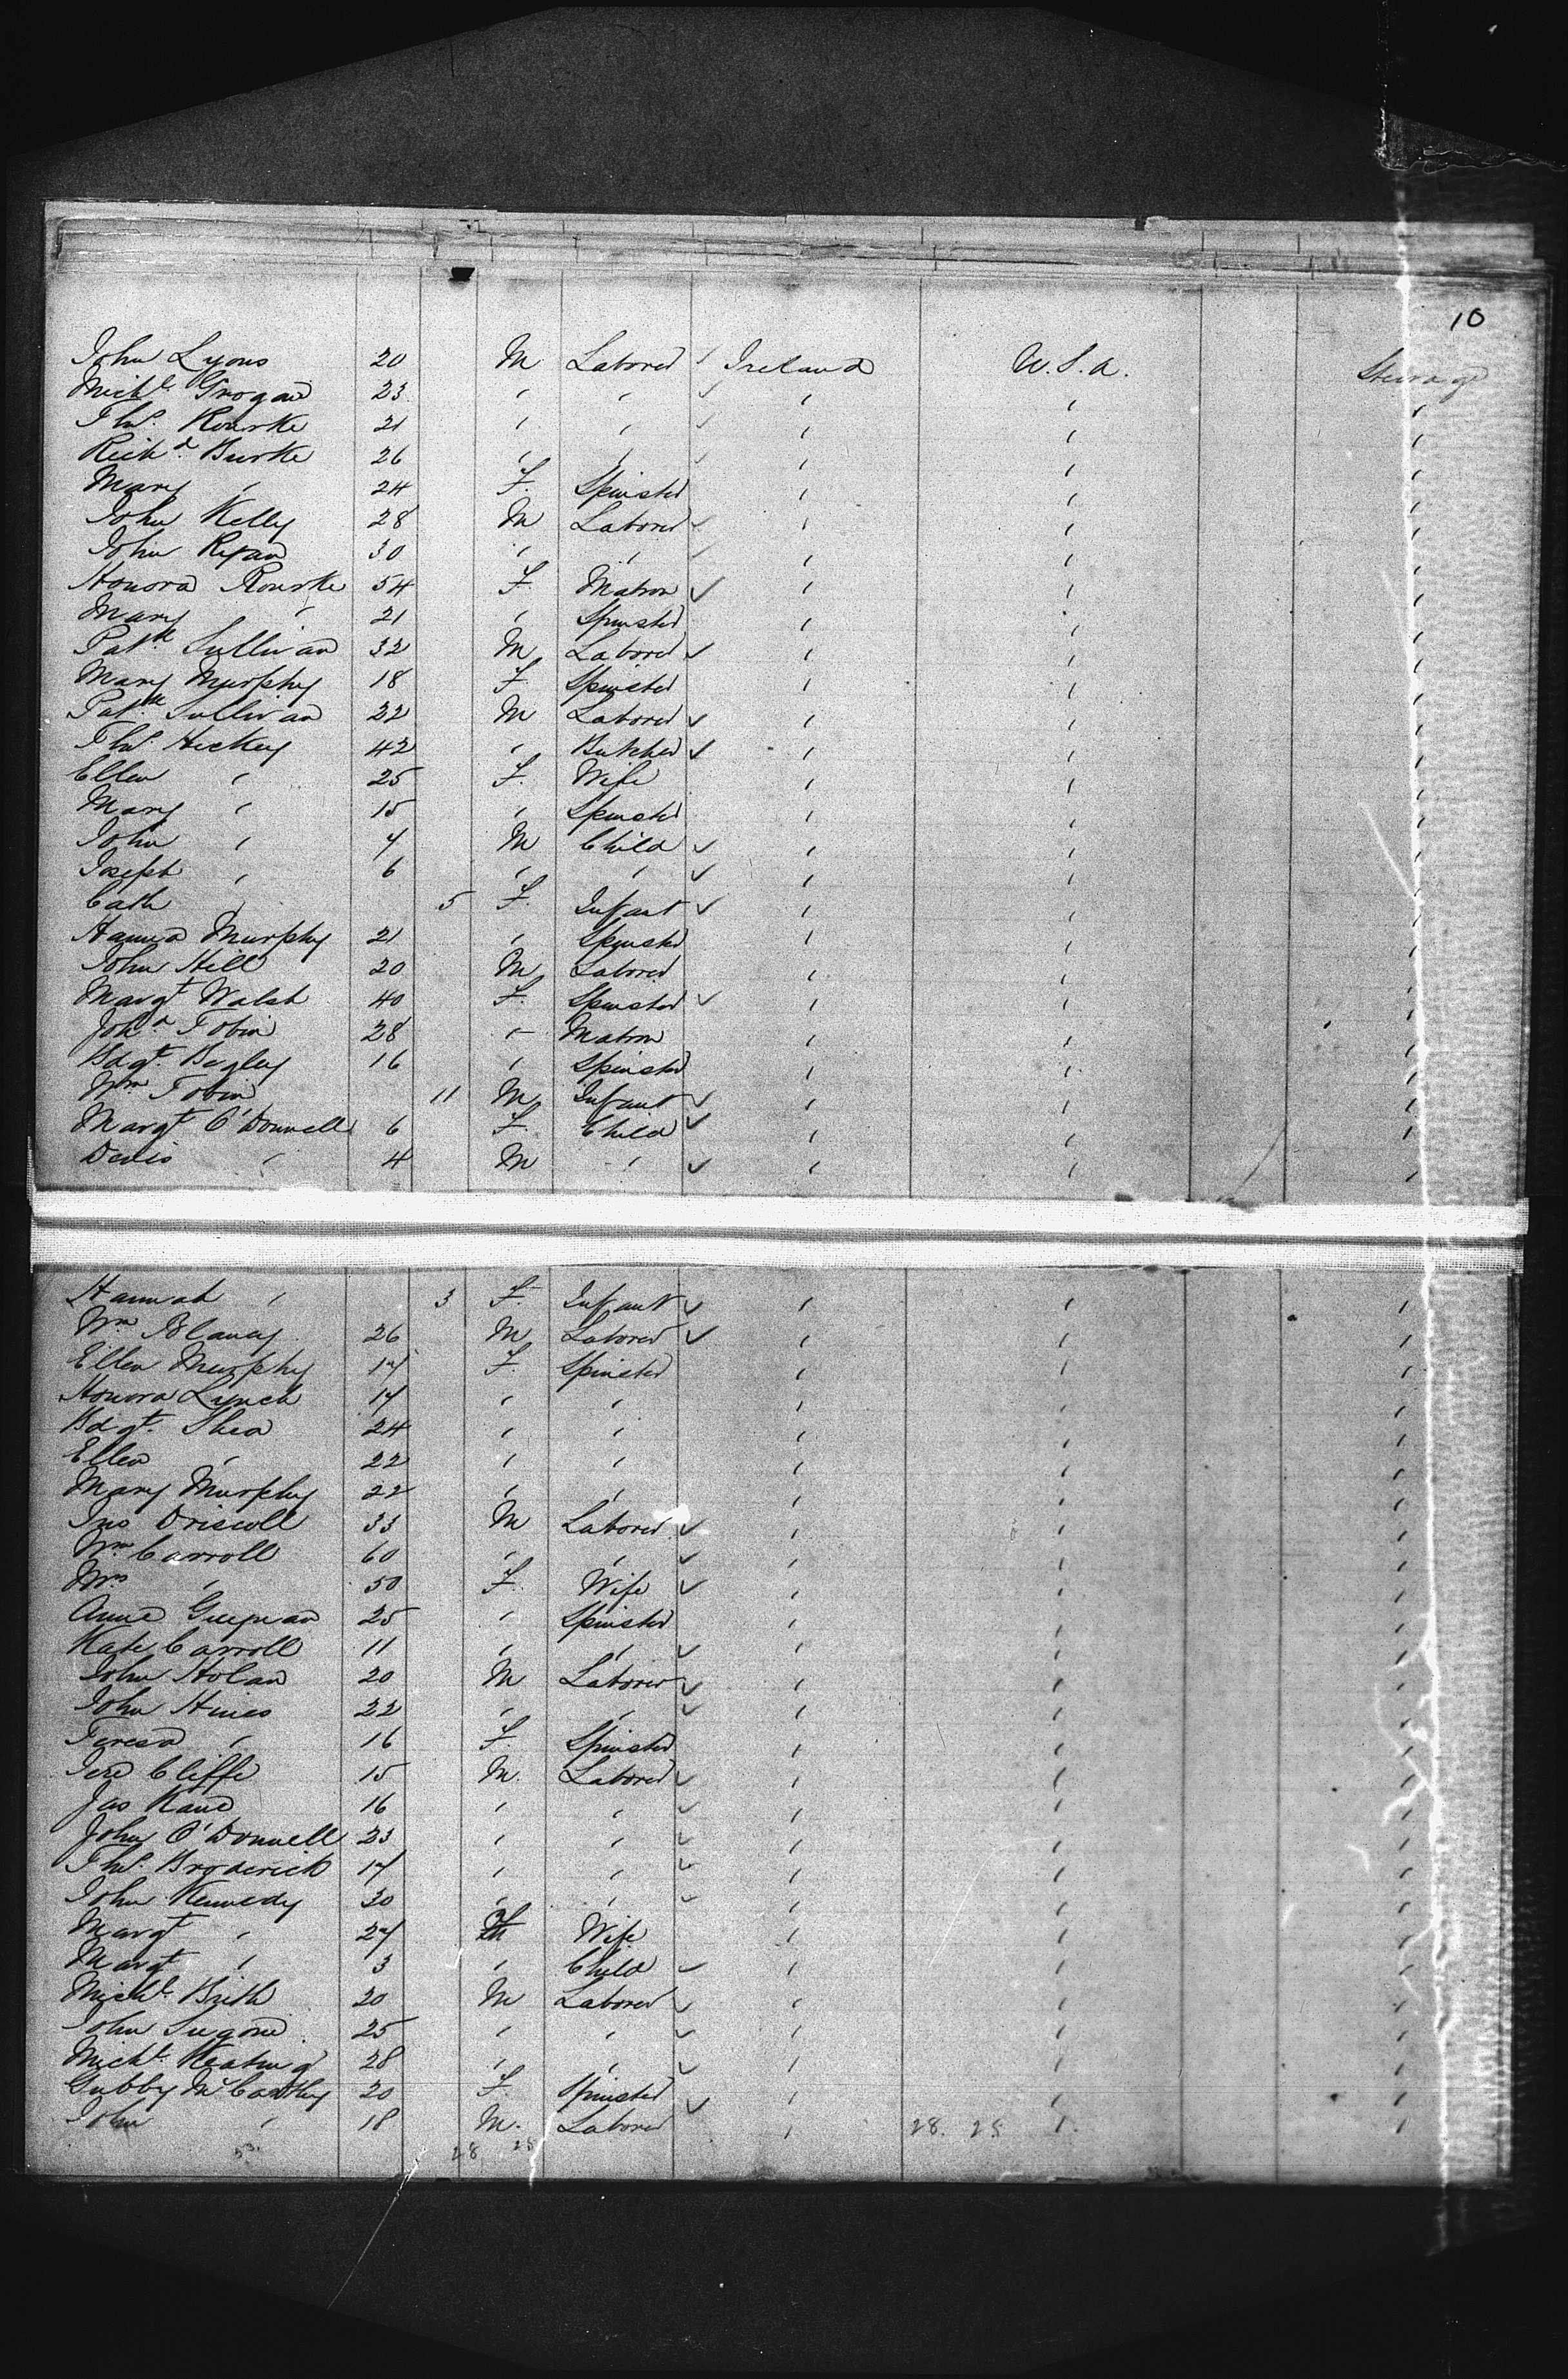 10
John Lyons 20 M Laborer ✓ Ireland U.S.A. Steerage
Michl. Grogan 23 " " ✓ " " "
Thos. Rourke 21 " " ✓ " " "
Richd. Burke 26 " " ✓ " " "
Mary " 24 F. Spinster " " "
John Kelly 28 M Laborer ✓ " " "
John Ryan 30 " " ✓ " " "
Honora Rourke 54 F. Matron ✓ " " "
Mary " 21 " Spinster " " "
Patk. Sullivan 32 M Laborer ✓ " " "
Mary Murphy 18 F. Spinster " " "
Patk. Sullivan 22 M Laborer ✓ " " "
Thos. Hickey 42 " Butcher ✓ " " "
Ellen " 25 F. Wife " " "
Mary " 15 " Spinster " " "
John " 7 M Child ✓ " " "
Joseph " 6 " " ✓ " " "
Cath " 5 F. Infant ✓ " " "
Hanna Murphy 21 " Spinster " " "
John Hill 20 M Laborer " " "
Margt Walsh 40 F. Spinster ✓ " " "
Joha. Tobin 28 " Matron " " "
Bdgt. Begley 16 " Spinster " " "
Wm Tobin 11 M Infant ✓ " " "
Margt O'Donnell 6 F. Child ✓ " " "
Denis " 4 M " ✓ " " "
Hannah " 3 F. Infant ✓ " " "
Wm Blaney 26 M Laborer ✓ " " "
Ellen Murphy 17 F. Spinster " " "
Honora Lynch 17 " " " " "
Bdgt. Shea 24 " " " " "
Ellen " 22 " " " " "
Mary Murphy 22 " " " " "
Jno Driscoll 33 M Laborer ✓ " " "
Wm Carroll 60 " " ✓ " " "
Mrs " 50 F. Wife ✓ " " "
Anne 25 " Spinster " " "
Kate Carroll 11 " " ✓ " " "
John Holan 20 M Laborer ✓ " " "
John Hines 22 " " ✓ " " "
Teresa " 16 F. Spinster " " "
Jere Cliffe 15 M. Laborer ✓ " " "
Jas Kane 16 " " ✓ " " "
John O'Donnell 23 " " ✓ " " "
Thos. Broderick 17 " " ✓ " " "
John Kennedy 30 " " ✓ " " "
Margt " 27 F Wife " " "
Margt " 3 " Child ✓ " " "
Michl. 20 M Laborer ✓ " " "
John 25 " " ✓ " " "
Michl. Keating 28 " " ✓ " " "
Gubby McCarthy 20 F. Spinster ✓ " " "
John " 18 M. Laborer " 28. 25 " "
53. 28 25